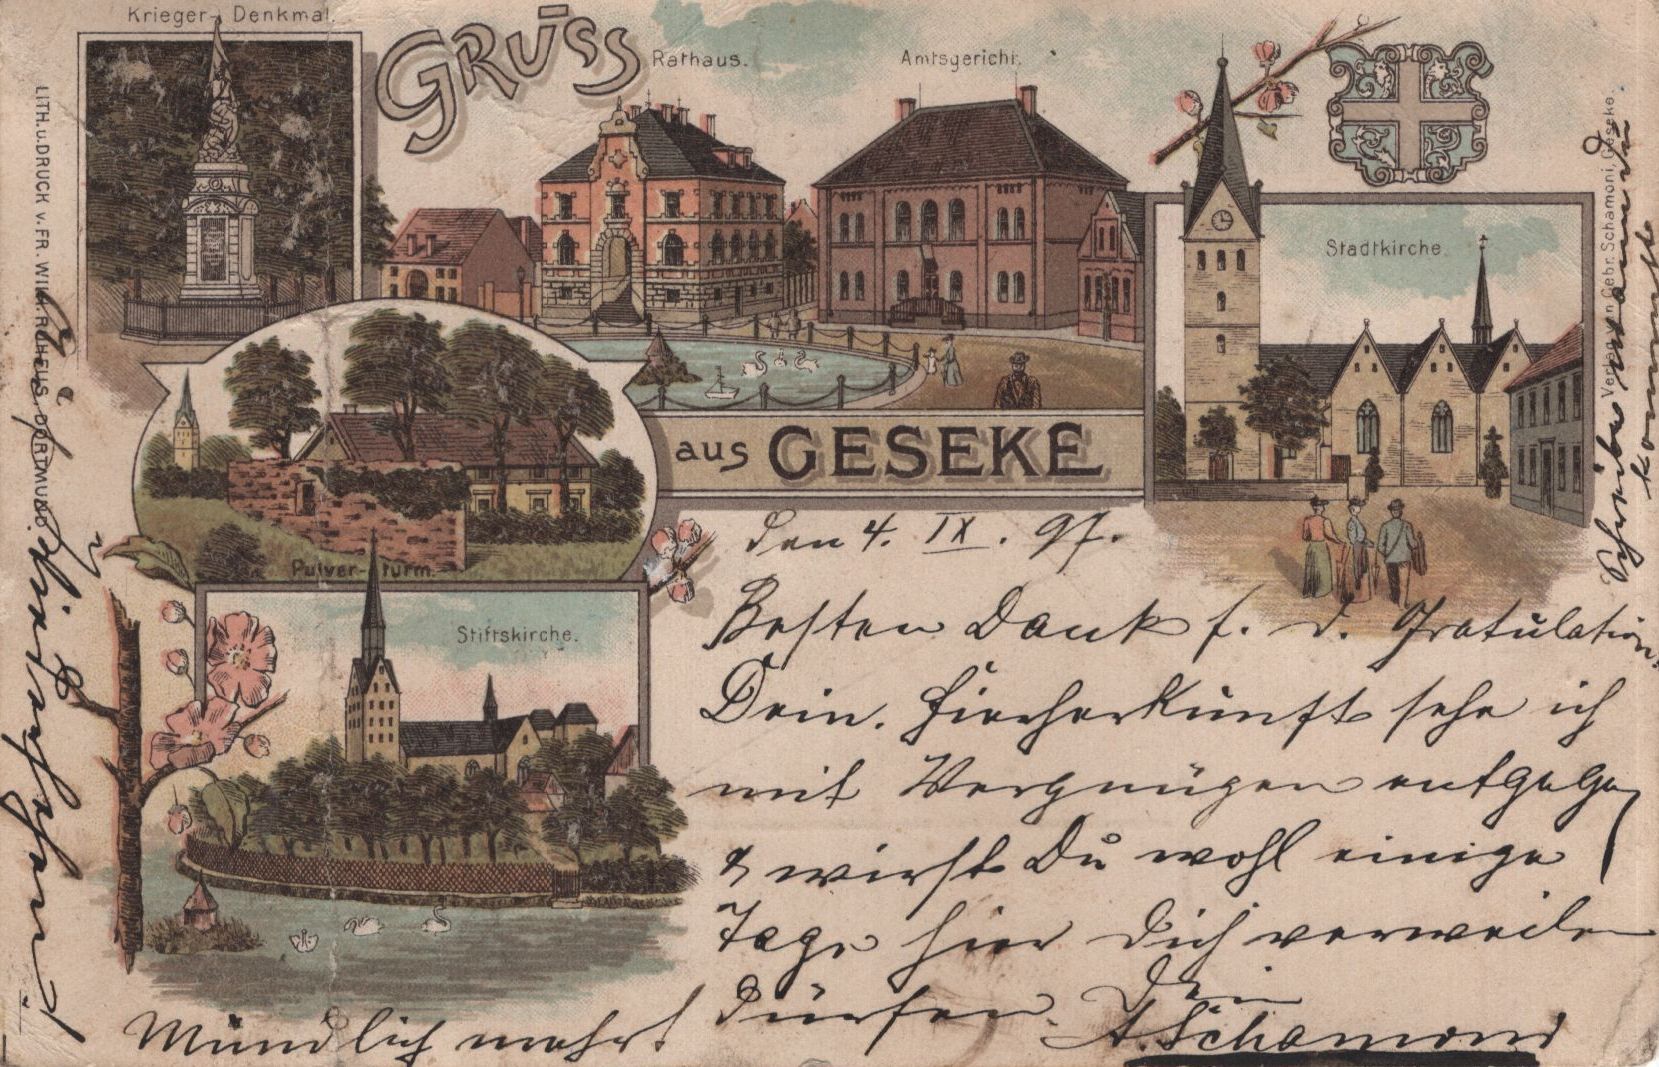 Krieger-Denkmal.
GRUSS
Rathaus.
Amtsgericht.
Stadtkirche.
aus GESEKE
Pulver-turm.
Stiftskirche.
LITH. u. DRUCK v. FR. WILH. RUHFUS, DORTMUND.
Verlag von Gebr. Schamoni, Geseke.
den 4. IX. 97.
Besten Dank f. d. Gratulation.
Dein. Hierherkunft sehe ich
mit Vergnügen entgegen,
& wirst Du wohl einige
Tage hier Dich verweilen
dürfen.
Dein
A. Schamoni
Mündlich mehr!
Schreibe wann Du
kommst
Auf Wiedersehen!